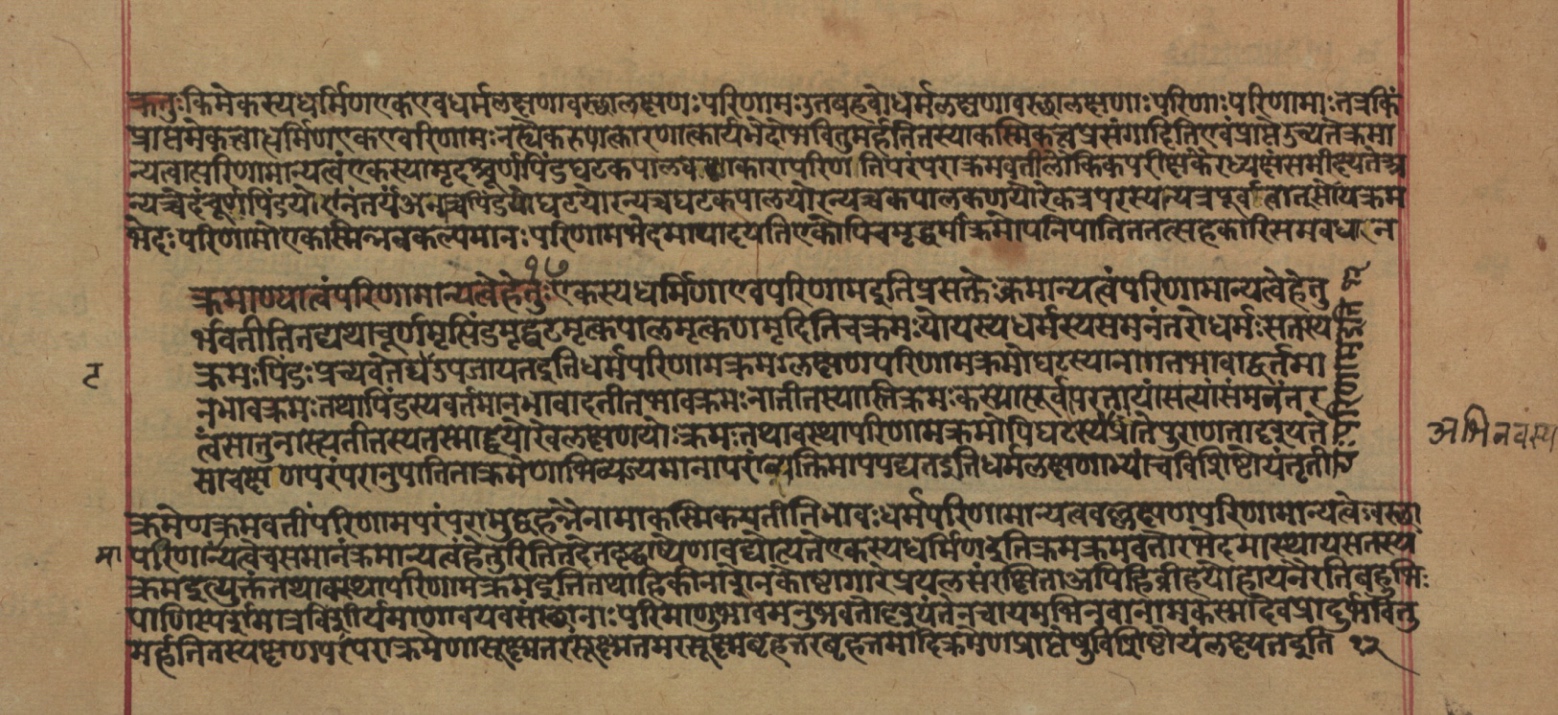 क्रतुः किमेकस्यधर्मिणएकएवधर्मलक्षणावस्छालक्षणः परिणामः उतबहवोधर्मलक्षणावस्छालक्षणाः परिणाः परिणामाः तत्रकिं
प्राप्तमेकत्वाधर्मिणएकएवरिणामः नह्येकरुपात्कारणात्कार्यभेदोभवितुमर्हतितस्याकस्मिकत्वप्रसंगादितिएवंप्राप्तेउच्यतेक्रमा
न्यत्वात्परिणामान्यत्वंएकस्यामृदश्चूर्णपिंडघटकपालकणाकारापरिणतिपरंपराक्रमवतीलौकिकपरीक्षकैरध्यक्षंसमीक्ष्यतेअ
न्यच्चेदंचूर्णपिंडयोरानंतर्यंअन्यच्चपिंडघटयोरन्यच्चघटकपालयोरन्यच्चकपालकणयोरेकत्रपरस्यान्यत्रपूर्वत्वात्सोयंक्रम
भेदः परिणामोएकस्मिन्नवकल्पमानः परिणामभेदमापादयतिएकोपिचमृद्धर्मीक्रमोपनिपातिततत्सहकारिसमवधान
क्रमाण्यात्वंपरिणामान्यत्वेहेतुः १५ एकस्यधर्मिणाएवपरिणामइतिप्रसक्तेक्रमान्यत्वंपरिणामान्यत्वेहेतु
र्भवतीतितद्यथाचूर्णमृत्पिंडमृद्घटमृत्कपालमृत्कणमृदितिचक्रमः योयस्यधर्मस्यसमनंतरोधर्मः सतस्य
क्रमः पिंडः प्रच्यवतेघटउपजायतइतिधर्मपरिणामक्रमः लक्षणपरिणामक्रमोघटस्यानागतभावाद्वर्तमा
नभावक्रमः तथापिंडस्यवर्तमानभावादतीतभावक्रमः नातीतस्यास्तिक्रमः कस्यात्पूर्वपरतायांसत्यांसंमनंतर
त्वंसातुनास्त्यतीतस्यतस्माद्द्वयोरेवलक्षणयोः क्रमः तथावस्थापरिणामक्रमोपिघटस्यप्रांतेपुराणतादृश्यते
साचक्षणपरंपरानुपातिनाक्रमेणाभिव्यज्यमानापरांव्यक्तिमापपद्यतइतिधर्मलक्षणाभ्यांचविशिष्टोयंतृतीय
परिणामइति
क्रमेणक्रमवतींपरिणामपरंपरामुद्वहन्नैनामाकस्मिकयतीतिभावः धर्मपरिणामान्यत्ववल्लक्षणपरिणामान्यत्वेअवस्छा
परिणान्यत्वेचसमानंक्रमान्यत्वंहेतुरितितदेतद्भाष्येणावद्योत्यतेएकस्यधर्मिणइतिक्रमक्रमवतोरभेदमास्थायसतस्य
क्रमइत्युक्तंतथावस्थापरिणामक्रमइतितथाहिकीनाशेनकोष्ठागारेप्रयत्नसंरक्षिताअपिहिव्रीहयोहायनैरतिबहुभिः
पाणिस्पर्शमात्रविशीर्यमाणावयवसंस्छानाः परिमाणुभावमनुभवंतोदृश्यंतेनचायमभिनवानामकस्मादेवप्रादुर्भवितु
मर्हतितस्यक्षणपरंपराक्रमेणासूक्ष्मतरसूक्ष्मतमरसूक्ष्मबृहत्तरबृहत्तमादिक्रमेणप्राप्तेषुविशिष्टोयंलक्ष्यतइति १२
ट
मा
अभिनवस्य